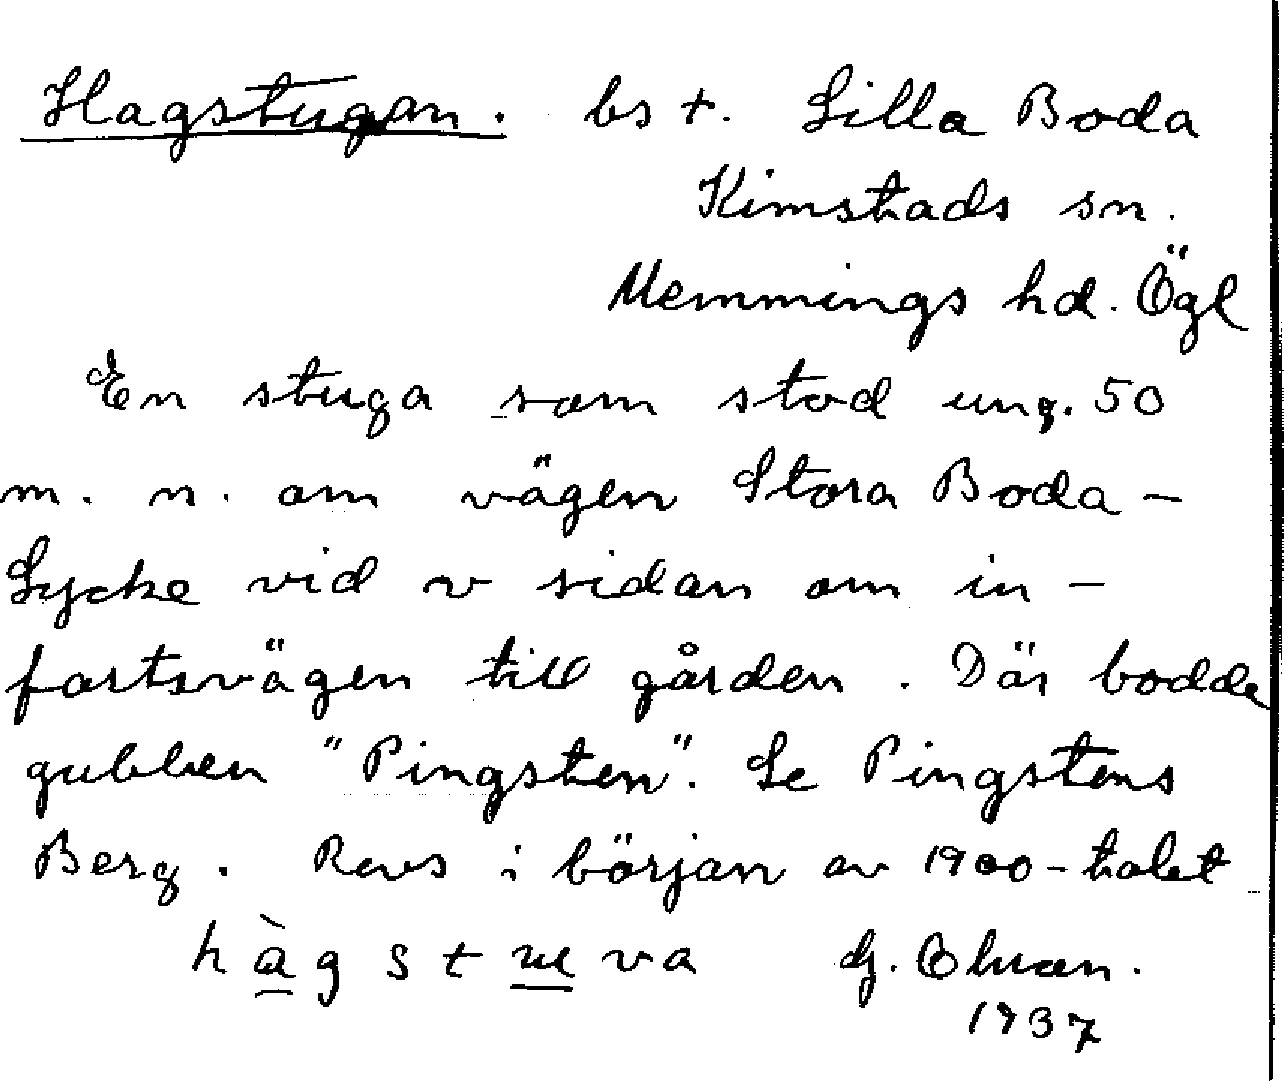 Hagstugan. bs t. Lilla Boda
Kimstads sn.
Memmings hd. Ögl
En stuga som stod ung. 50
m. n. om vägen Stora Boda –
Lycke vid v sidan om in –
fartsvägen till gården. Där bodde
gubben "Pingsten". Se Pingstens
Berg. Revs i början av 1900-talet
hàgstuva G.
1937